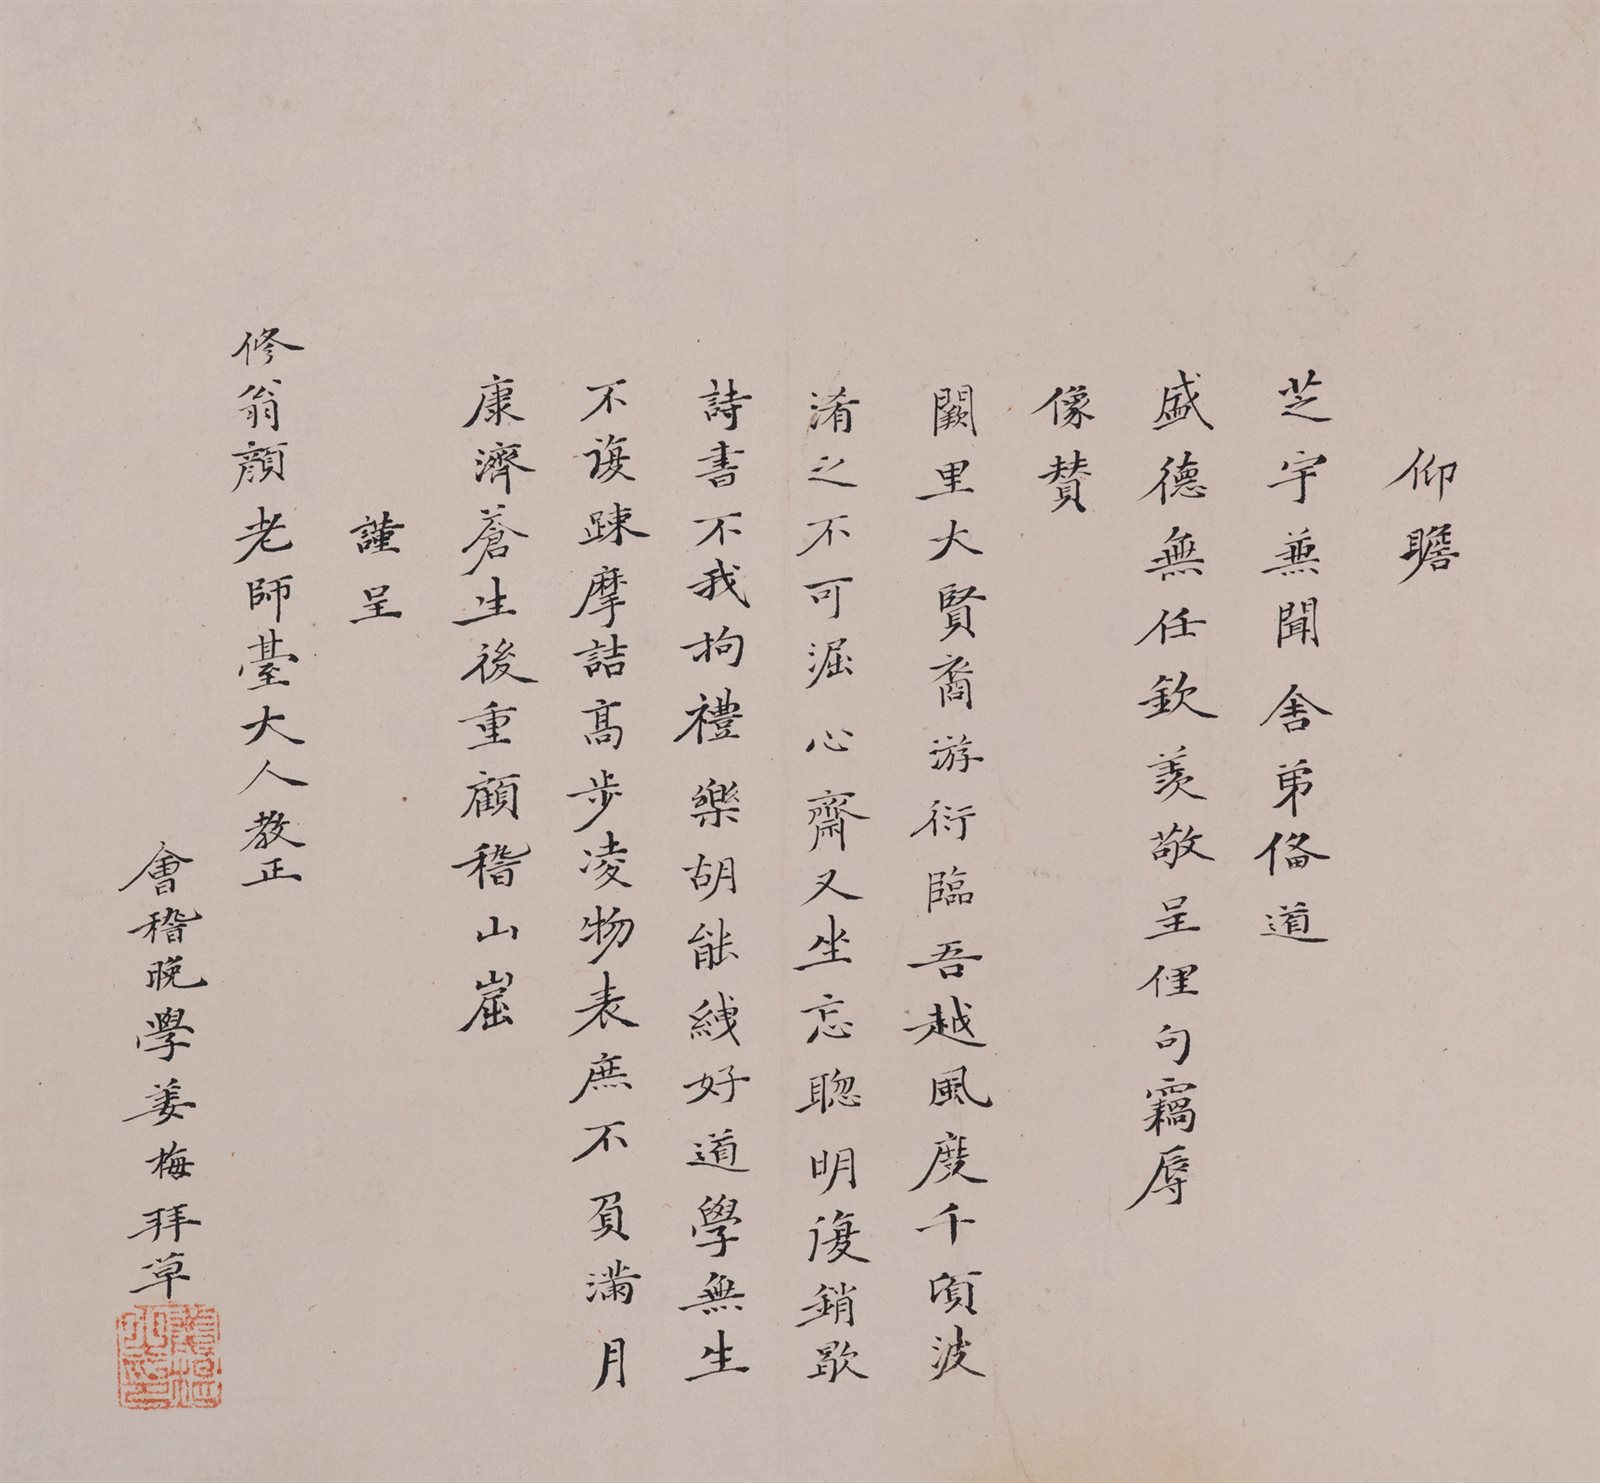 仰瞻
芝宇兼聞舍弟俻道
盛德無任欽羨敬呈俚句竊辱
像賛
闕里大賢裔游衍臨吾越風度千頃波
淆之不可淈心齋又坐忘聰明復銷歇
詩書不我拘禮樂胡能紲好道學無生
不諼踈摩詰高步凌物表庶不負滿月
康濟蒼生後重顧稽山崫
謹呈
修翁顔老師臺大人教正
會稽晚學姜梅拜草